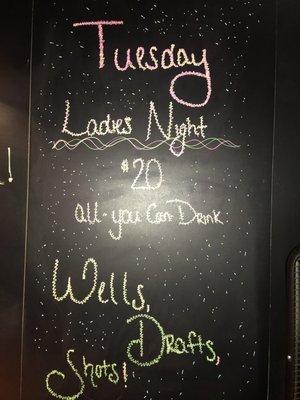 Tuesday
Ladies Night
$20
all-you Can Drink
Wells,
Drafts,
Shots!